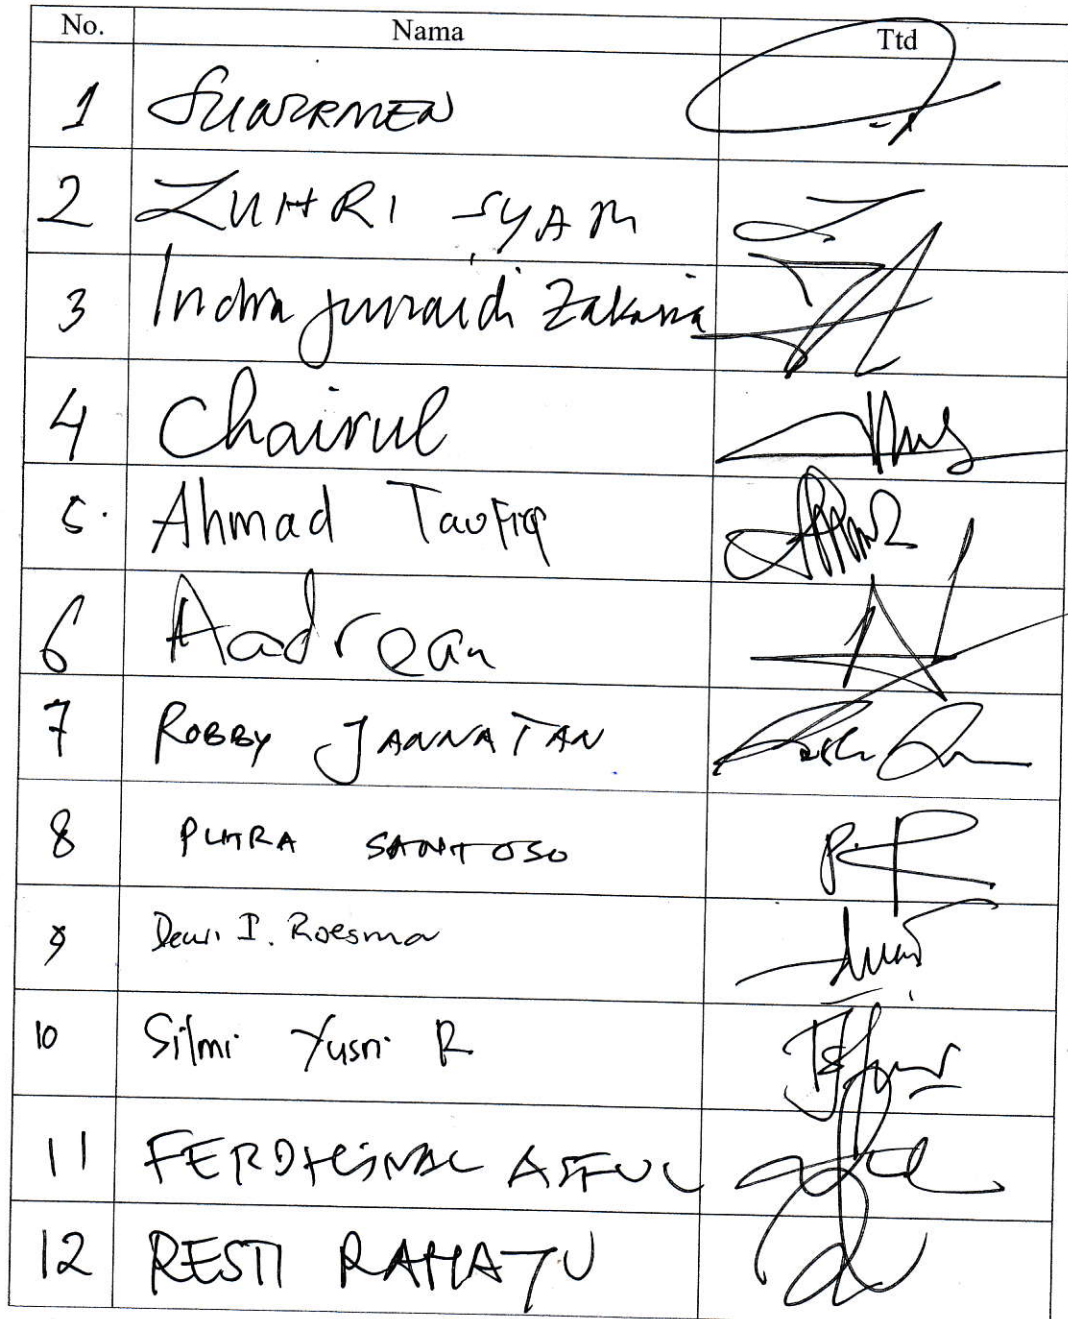 No. Nama Ttd
1 SUWIRMEN
2 ZUHRI SYAM
3 Indra Junaidi Zakaria
4 Chairul
5. Ahmad Taufiq
6 Aadrean
7 ROBBY JANNATAN
8 PUTRA SANTOSO
9 Dewi I. Roesma
10 Silmi Yusri R
11 FERDHINAL ASFUL
12 RESTI RAHAYU